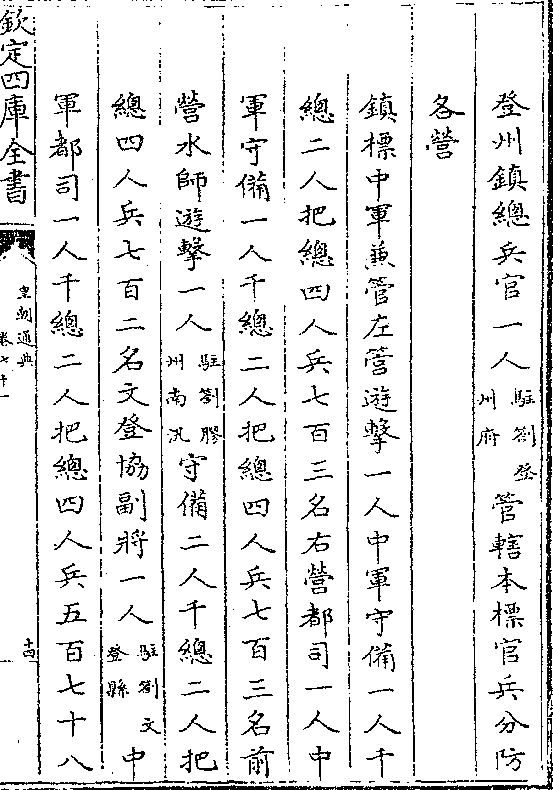 登州鎮總兵官一人駐劄登州府管轄本標官兵分防
各營
鎮標中軍兼管左營遊擊一人中軍守備一人千
總二人把總四人兵七百三名右營都司一人中
軍守備一人千總二人把總四人兵七百三名前
營水師遊擊一人駐劄膠州南汛守備二人千總二人把
總四人兵七百二名文登協副將一人駐劄文登縣中
軍都司一人千總二人把總四人兵五百七十八
欽定四庫全書
皇朝通典
卷七十一
十四